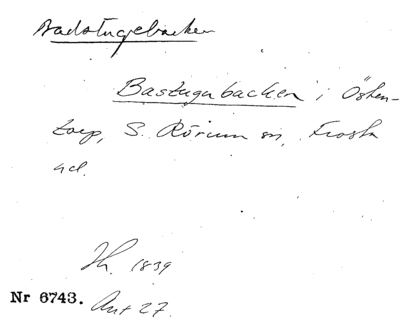 Badstugebacken
Bastugubacken i Östen-
torp, S. Rörum sn, Frosta
hd.
Jh. 1839
Nr 6743. Ant 27.